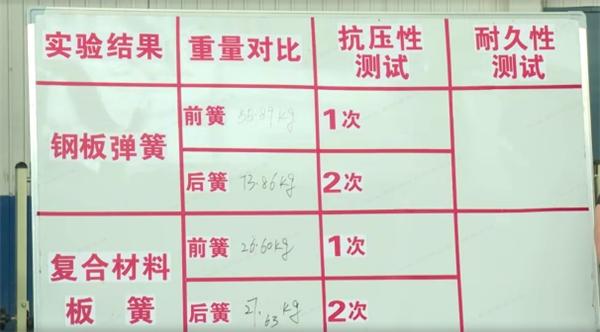 实验结果 重量对比 抗压性测试 耐久性测试
钢板弹簧 前簧 1次
后簧 73.86kg 2次
复合材料板 簧 前簧 26.60kg 1次
后簧 27.63kg 2次